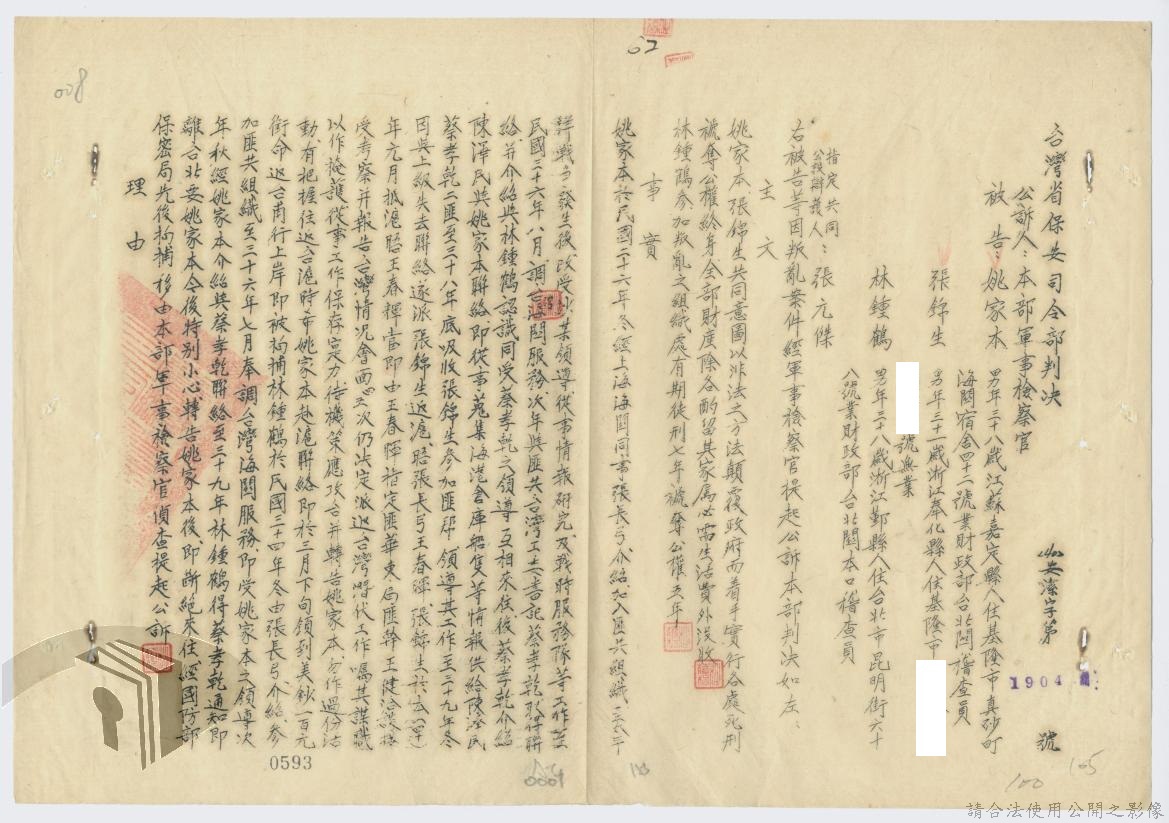 台灣省保安司令部判決
安潔字第1904號
公訴人：本部軍事檢察官
被告：姚家本 男年三十八歲江蘇嘉定縣人住基隆市真砂町
海關宿舍四十二號業財政部台北關稽查員
張錦生 男年三十一歲浙江奉化縣人住基隆市
號無業
林鍾鶴 男年三十八歲浙江鄞縣人住台北市昆明街六十
八號業財政部台北關本口稽查員
指定共同
公設辯護人：張元傑
右被告等因叛亂案件經軍事檢察官提起公訴本部判決如左
主文
姚家本、張錦生共同意圖以非法之方法顛覆政府而着手實行各處死刑
褫奪公權終身全部財產除各酌留其家屬必需生活費外沒收
林鍾鶴參加叛亂之組織處有期徒刑七年褫奪公權五年
事實
姚家本於民國二十六年冬經上海海關同事張長弓介紹加入匪共組織
戰爭發生後改受某領導從事情報研究及戰時服務隊等工作至
民國三十六年八月調台海關服務次年與匪共台灣工委書記蔡孝乾取得聯
絡并介紹與林鍾鶴認識同受蔡孝乾之領導互相來往後蔡孝乾介紹
陳澤民與姚家本聯絡即從事蒐集海港倉庫船隻等情報供給陳澤民
蔡孝乾二匪至三十八年底吸收張錦生參加匪幫領導其工作至三十九年冬
因與上級失去聯絡遂派張錦生返滬晤張長弓王春暉張錦生於去
年元月抵滬晤王春暉當即由王春暉指定匪華東局匪幹王健
受考察并報告台灣情況會面三次仍決定派返台灣暗伏工作囑其謀職
以作掩護從事工作保存實力待機策應攻台并轉告姚家本勿作過份活
動有把握往返台滬時命姚家本赴滬聯絡即於三月下旬領到美鈔一百元
銜命返台甫行上岸即被拘捕林鍾鶴於民國三十四年冬由張長弓介紹參
加匪共組織至三十六年七月奉調台灣海關服務即受姚家本之領導次
年秋經姚家本介紹與蔡孝乾聯絡至三十九年林鍾鶴得蔡孝乾通知即
離台北要姚家本今後特別小心轉告姚家本後即斷絕來往經國防部
保密局先後拘捕移由本部軍事檢察官偵查提起公訴
理由
62
008
0593
0009
100
105
請合法使用公開之影像